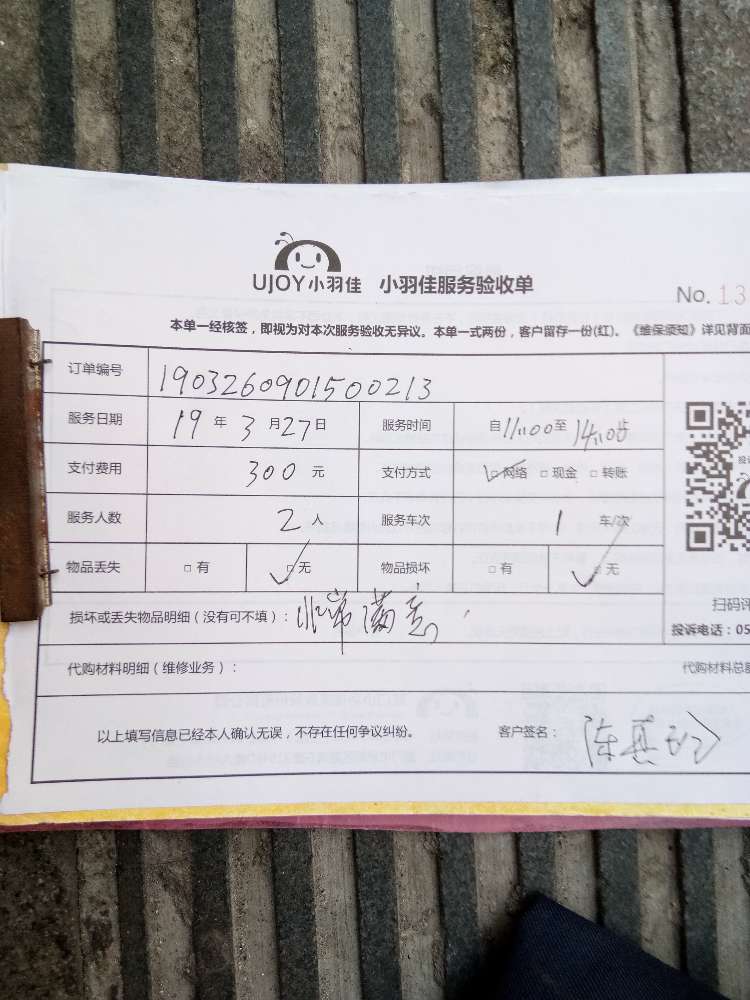 UJOY小羽佳 小羽佳服务验收单
No. 13
本单一经核签，即视为对本次服务验收无异议。本单一式两份，客户留存一份(红)。《维保须知》详见背面
订单编号 1903260901500213
服务日期 19 年 3 月 27 日 服务时间 自 11:00 至 14:00 止
支付费用 300 元 支付方式 ☑网络 □现金 □转账
服务人数 2 人 服务车次 1 车/次
物品丢失 □有 ☑无 物品损坏 □有 ☑无
损坏或丢失物品明细（没有可不填）：非常满意
扫码评
投诉电话：05
代购材料明细（维修业务）： 代购材料总额
以上填写信息已经本人确认无误，不存在任何争议纠纷。 客户签名：陈